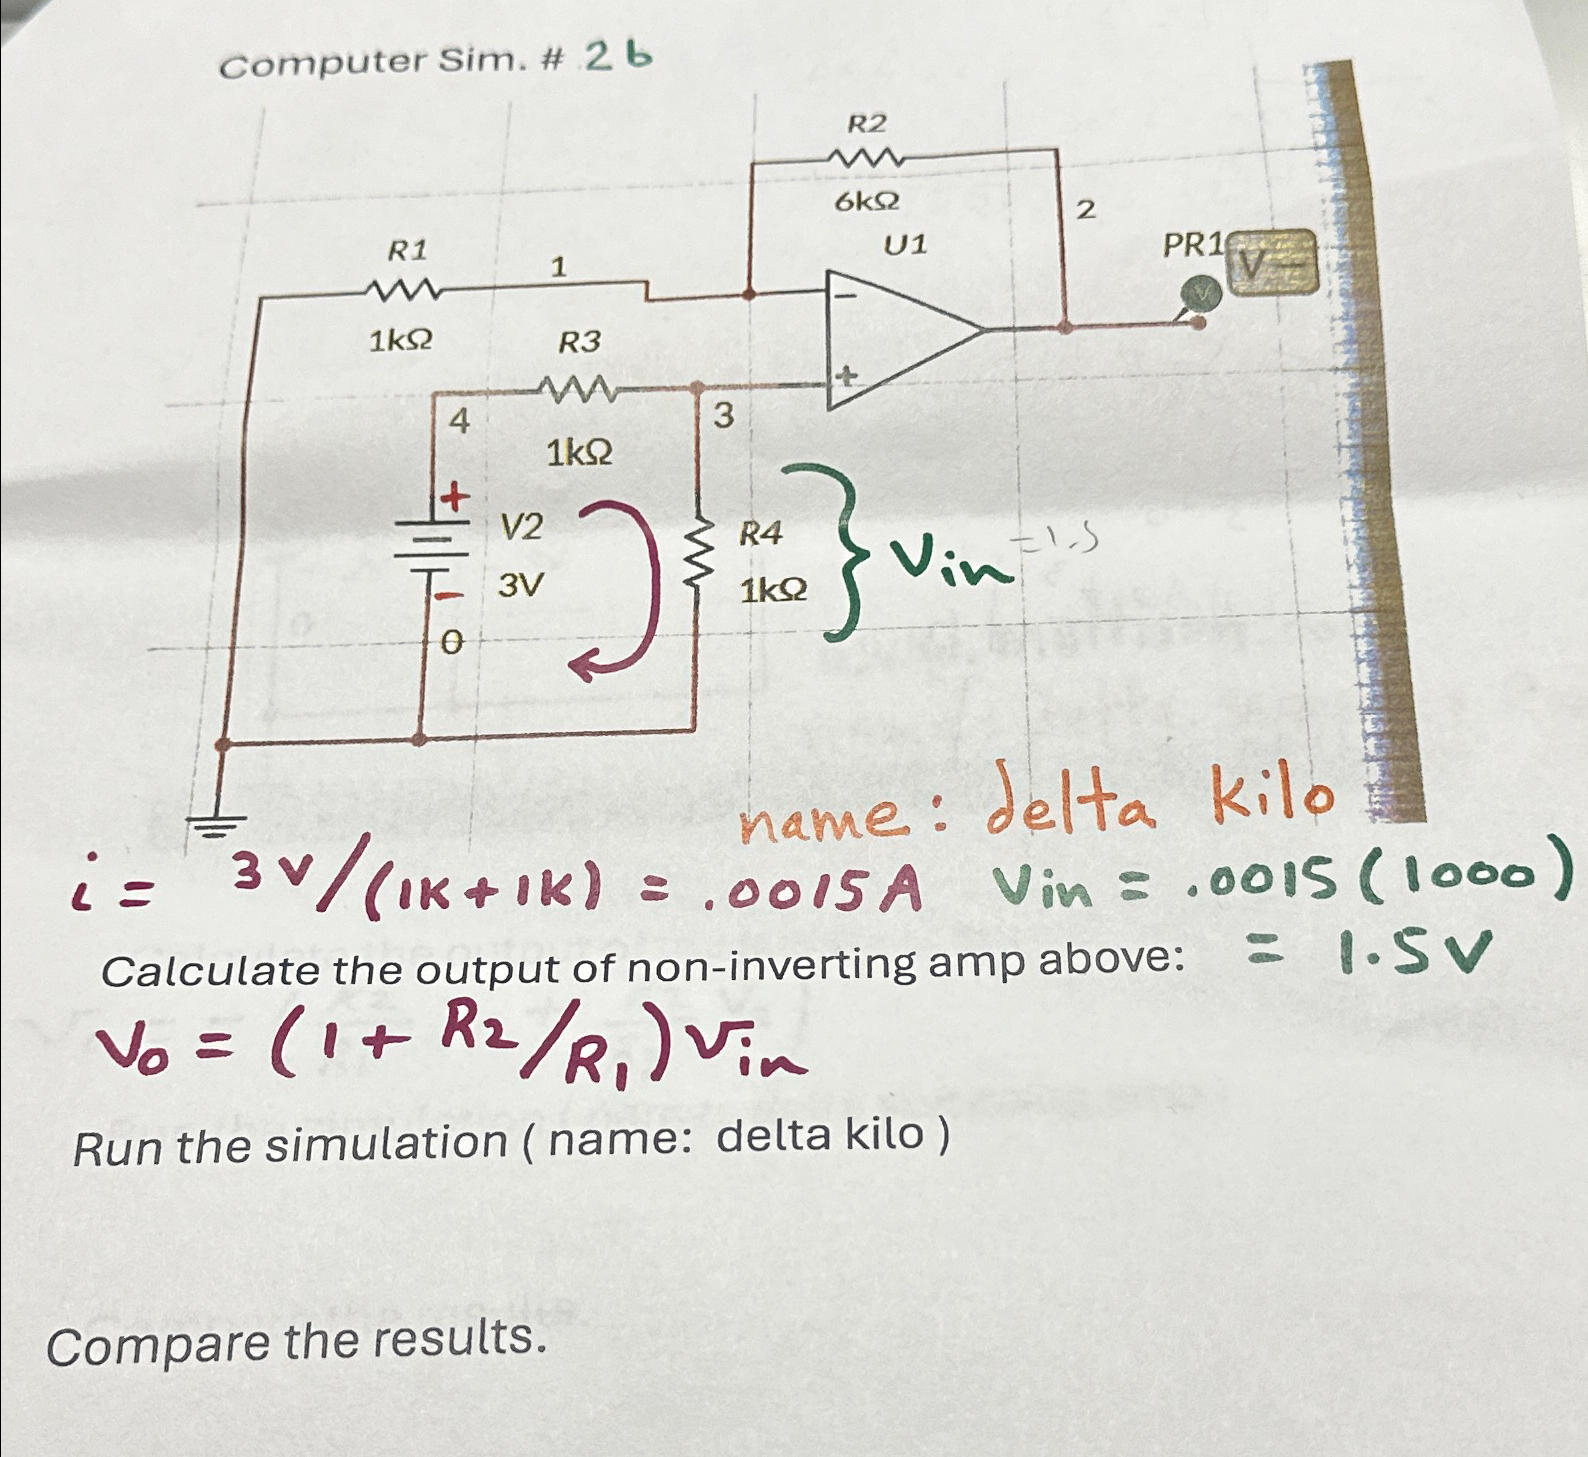 Computer Sim. # 2 b
R2
6kΩ
2
U1
PR1
V
V
R1
1
1kΩ
R3
−
+
4
3
1kΩ
+
V2
R4
Vin = 1.5
3V
1kΩ
−
0
name: delta kilo
i = 3V/(1K+1K) = .0015A Vin = .0015(1000)
Calculate the output of non-inverting amp above: = 1.5V
Vo = (1+ R2/R1)Vin
Run the simulation ( name: delta kilo )
Compare the results.